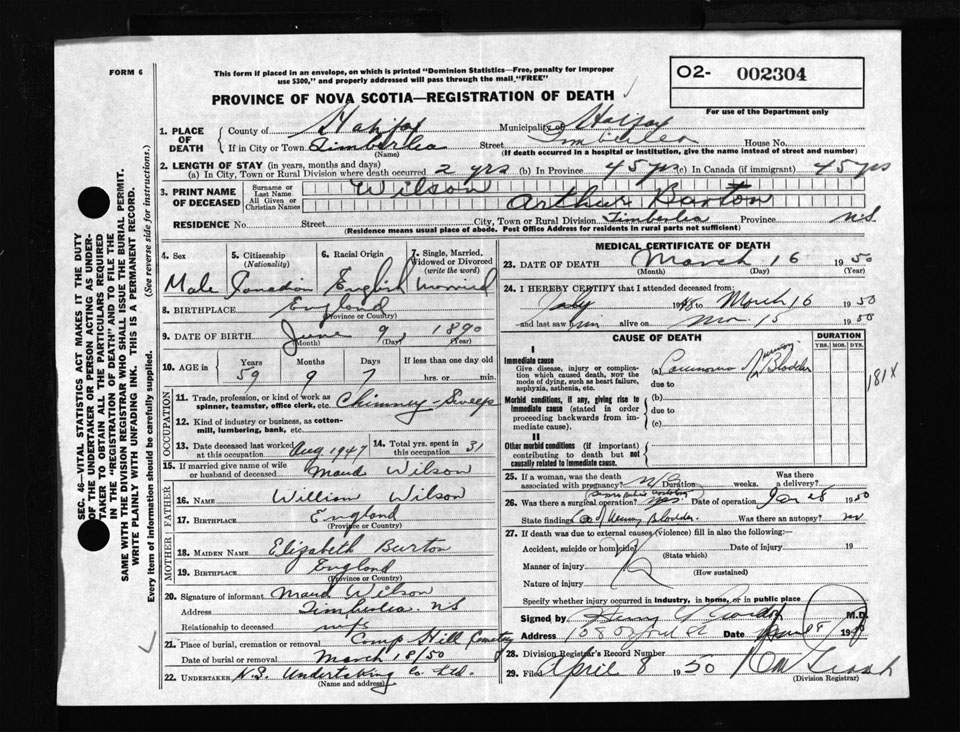 FORM 6
This form if placed in an envelope, on which is printed "Dominion Statistics—Free, penalty for improper
use $300," and properly addressed will pass through the mail "FREE"
O2- 002304
For use of the Department only
PROVINCE OF NOVA SCOTIA—REGISTRATION OF DEATH
1. PLACE OF DEATH
County of Halifax Municipality of Halifax
If in City or Town Timberlea Street House No.
(Name) (If death occurred in a hospital or institution, give the name instead of street and number)
2. LENGTH OF STAY (in years, months and days)
(a) In City, Town or Rural Division where death occurred 2 yrs (b) In Province 45 yrs (c) In Canada (if immigrant) 45 yrs
3. PRINT NAME OF DECEASED
Surname or Last Name Wilson
All Given or Christian Names Arthur Barton
RESIDENCE No. Street City, Town or Rural Division Timberlea Province N.S.
(Residence means usual place of abode. Post Office Address for residents in rural parts not sufficient)
4. Sex 5. Citizenship (Nationality) 6. Racial Origin 7. Single, Married, Widowed or Divorced (write the word)
Male Canadian English married
8. BIRTHPLACE England
(Province or Country)
9. DATE OF BIRTH June 9, 1890
(Month) (Day) (Year)
10. AGE in Years Months Days If less than one day old
59 9 7 hrs. or min.
OCCUPATION
11. Trade, profession, or kind of work as spinner, teamster, office clerk, etc. Chimney Sweep
12. Kind of industry or business, as cotton-mill, lumbering, bank, etc.
13. Date deceased last worked at this occupation Aug 1947 14. Total yrs. spent in this occupation 31
15. If married give name of wife or husband of deceased Maud Wilson
FATHER
16. NAME William Wilson
17. BIRTHPLACE England
(Province or Country)
MOTHER
18. MAIDEN NAME Elizabeth Burton
19. BIRTHPLACE England
(Province or Country)
20. Signature of informant Maud Wilson
Address Timberlea NS
Relationship to deceased wife
21. Place of burial, cremation or removal Camp Hill Cemetery
Date of burial or removal March 18/50
22. UNDERTAKER N.S. Undertaking Co. Ltd.
(Name and address)
MEDICAL CERTIFICATE OF DEATH
23. DATE OF DEATH March 16 1950
(Month) (Day) (Year)
24. I HEREBY CERTIFY that I attended deceased from:
July 1948 to March 16 1950
and last saw him alive on Mar 15 1950
CAUSE OF DEATH DURATION
YRS. MOS. DYS.
I
Immediate cause
Give disease, injury or complication which caused death, NOT the mode of dying, such as heart failure, asphyxia, asthenia, etc.
(a) Carcinoma of Urinary Bladder
181X
due to
Morbid conditions, if any, giving rise to immediate cause (stated in order proceeding backwards from immediate cause).
(b)
due to
(c)
II
Other morbid conditions (if important) contributing to death but not causally related to immediate cause.
25. If a woman, was the death associated with pregnancy? No Duration weeks. Was there a delivery?
26. Was there a surgical operation? yes Date of operation Jan 28 1950
State findings Ca of Urinary Bladder Was there an autopsy? no
27. If death was due to external causes (violence) fill in also the following:
Accident, suicide or homicide? Date of injury 19
(State which)
Manner of injury
(How sustained)
Nature of injury
Specify whether injury occurred in industry, in home, or in public place
Signed by M.D.
Address Date
28. Division Registrar's Record Number
29. Filed April 8 1950
(Division Registrar)
SEC. 46—VITAL STATISTICS ACT MAKES IT THE DUTY
OF THE UNDERTAKER OR PERSON ACTING AS UNDER-
TAKER TO OBTAIN ALL THE PARTICULARS REQUIRED
IN THE "REGISTRATION OF DEATH" AND TO FILE THE
SAME WITH THE DIVISION REGISTRAR WHO SHALL ISSUE THE BURIAL PERMIT.
WRITE PLAINLY WITH UNFADING INK. THIS IS A PERMANENT RECORD.
Every item of information should be carefully supplied. (See reverse side for instructions.)